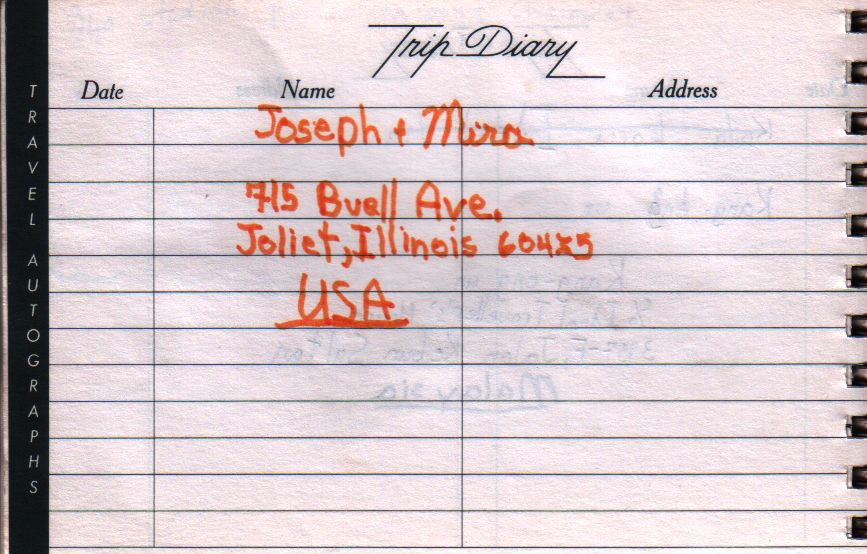 Trip Diary
Date Name Address
TRAVEL AUTOGRAPHS
Joseph + Mira
715 Buell Ave.
Joliet, Illinois
USA
Malaysia